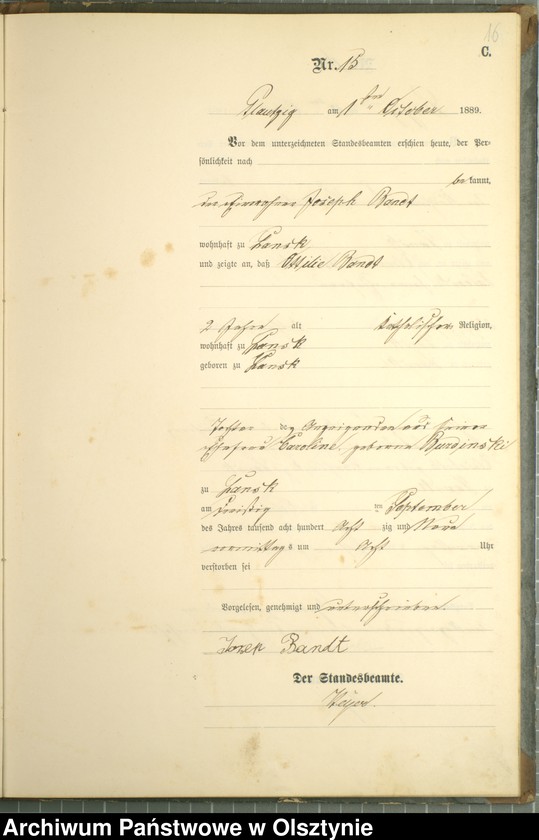 16
C.
Nr. 15
Plautzig am 1ten October 1889.
Vor dem unterzeichneten Standesbeamten erschien heute, der Per-
sönlichkeit nach
bekannt,
der Einwohner Joseph Bandt
wohnhaft zu Lansk
und zeigte an, daß Ottilie Bandt
2 Jahre alt katholischer Religion,
wohnhaft zu Lansk
geboren zu Lansk
Tochter des Anzeigenden und seiner
Ehefrau Caroline geborene
zu Lansk
am dreißig ten September
des Jahres tausend acht hundert Acht zig und Neun
vormittags um Acht Uhr
verstorben sei
Vorgelesen, genehmigt und unterschrieben
Josek Bandt
Der Standesbeamte.
Archiwum Państwowe w Olsztynie